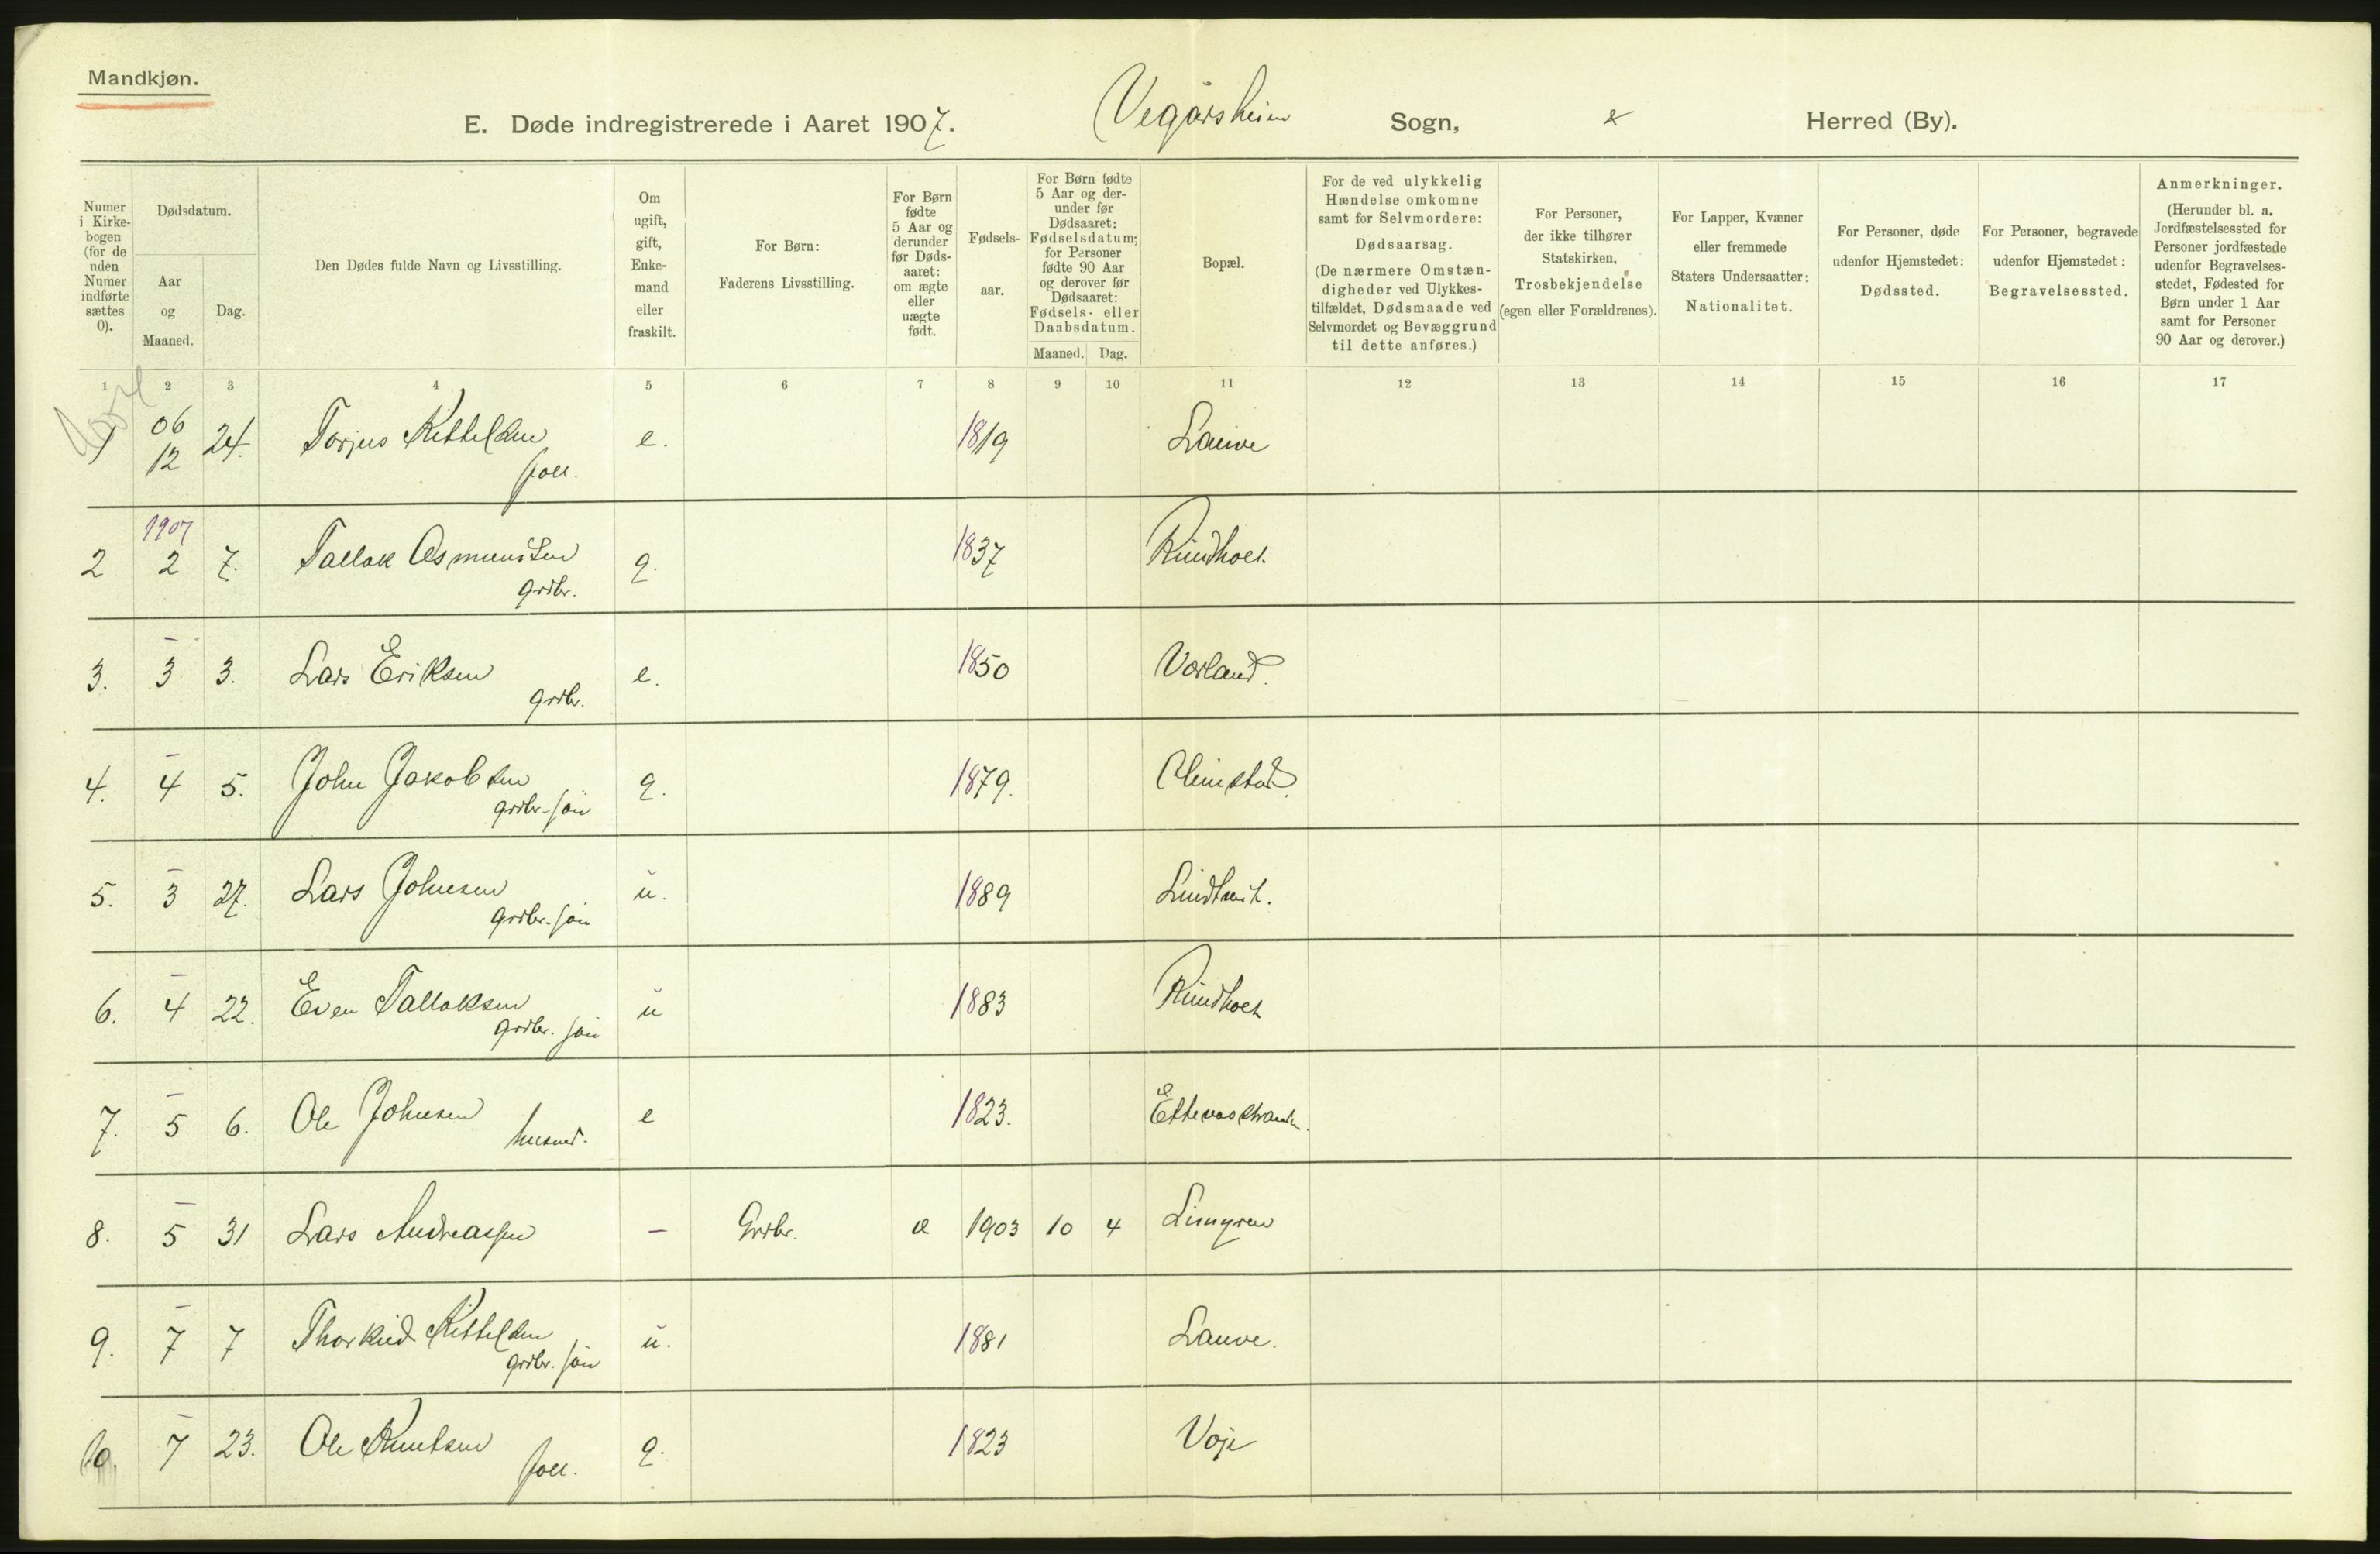 Mandkjøn.
E. Døde indregistrerede i Aaret 1907. Vegårsheim Sogn, Herred (By).
Numer i Kirkebogen (for de uden Numer indførte sættes 0).
Dødsdatum.
Aar og Maaned.
Dag.
Den Dødes fulde Navn og Livsstilling.
Om ugift, gift, Enkemand eller fraskilt.
For Børn: Faderens Livsstilling.
For Børn fødte 5 Aar og derunder før Dødsaaret: om ægte eller uægte født.
Fødselsaar.
For Børn fødte 5 Aar og derunder før Dødsaaret: Fødselsdatum; for Personer fødte 90 Aar og derover før Dødsaaret: Fødsels- eller Daabsdatum.
Maaned. Dag.
Bopæl.
For de ved ulykkelig Hændelse omkomne samt for Selvmordere: Dødsaarsag. (De nærmere Omstændigheder ved Ulykkestilfældet, Dødsmaade ved Selvmordet og Bevæggrund til dette anføres.)
For Personer, der ikke tilhører Statskirken, Trosbekjendelse (egen eller Forældrenes).
For Lapper, Kvæner eller fremmede Staters Undersaatter: Nationalitet.
For Personer, døde udenfor Hjemstedet: Dødssted.
For Personer, begravede udenfor Hjemstedet: Begravelsessted.
Anmerkninger. (Herunder bl. a. Jordfæstelsessted for Personer jordfæstede udenfor Begravelsesstedet, Fødested for Børn under 1 Aar samt for Personer 90 Aar og derover.)
1 2 3 4 5 6 7 8 9 10 11 12 13 14 15 16 17
1 06 12 24. Torjus Kittelsen e. 1819 Lauve
foll.
1907
2 2 7. Tallak Asmundsen g. 1837 Rundholt.
grdbr.
3. – 3 3. Lars Eriksen e. 1850 Vorland.
grdbr.
4. – 4 5. John Jakobsen g. 1879.
grdbr.-søn
5. – 3 27. Lars Johnsen ŭ. 1889 Lindtveit.
grdbr.-søn
6. – 4 22. Even Tallaksen ŭ 1883 Rundholt
grdbr. søn
7. – 5 6. Ole Johnsen e 1823.
husmd.
8. – 5 31 Lars Andreassen – Grdbr. æ 1903 10 4 Limyren
9. – 7 7 Thorkild Kittelsen ŭ. 1881 Lauve.
grdbr. søn
10. – 7 23. Ole Knutsen g. 1823 Voje
foll.